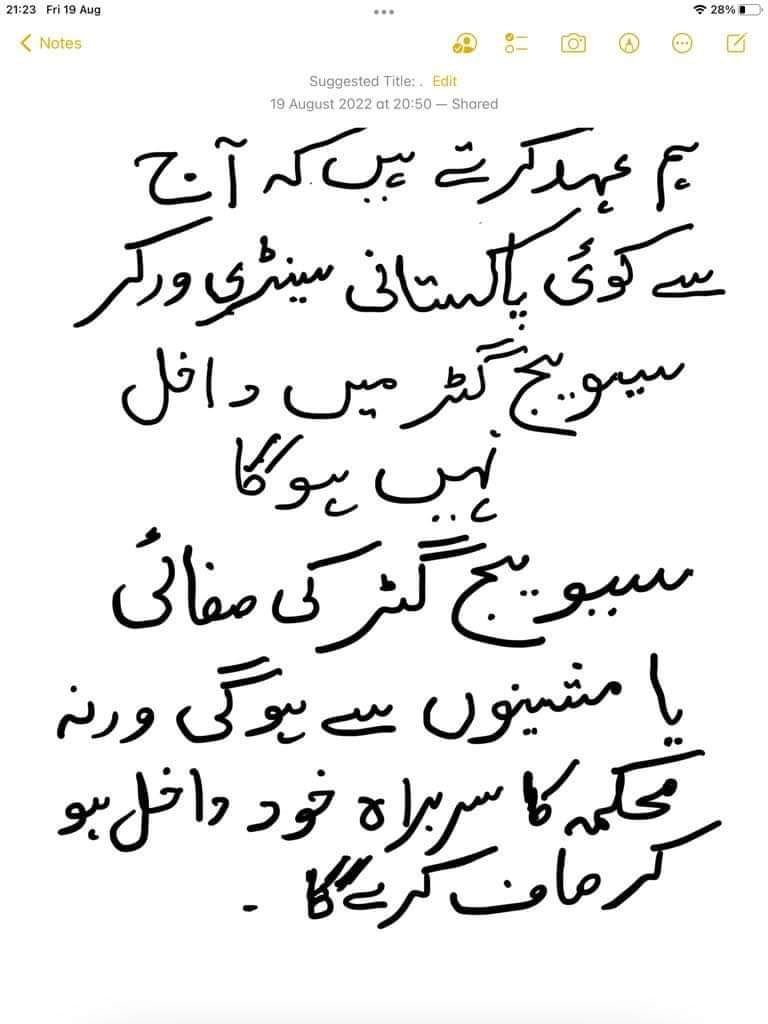 21:23 Fri 19 Aug
28%
Notes
Suggested Title: . Edit
19 August 2022 at 20:50 — Shared
ہم عہد کرتے ہیں کہ آج
سے کوئی پاکستانی سینٹری ورکر
سیویج گٹر میں داخل
نہیں ہوگا
سیویج گٹر کی صفائی
یا مشینوں سے ہوگی ورنہ
محکمہ کا سربراہ خود داخل ہو
کر صاف کرے گا ۔